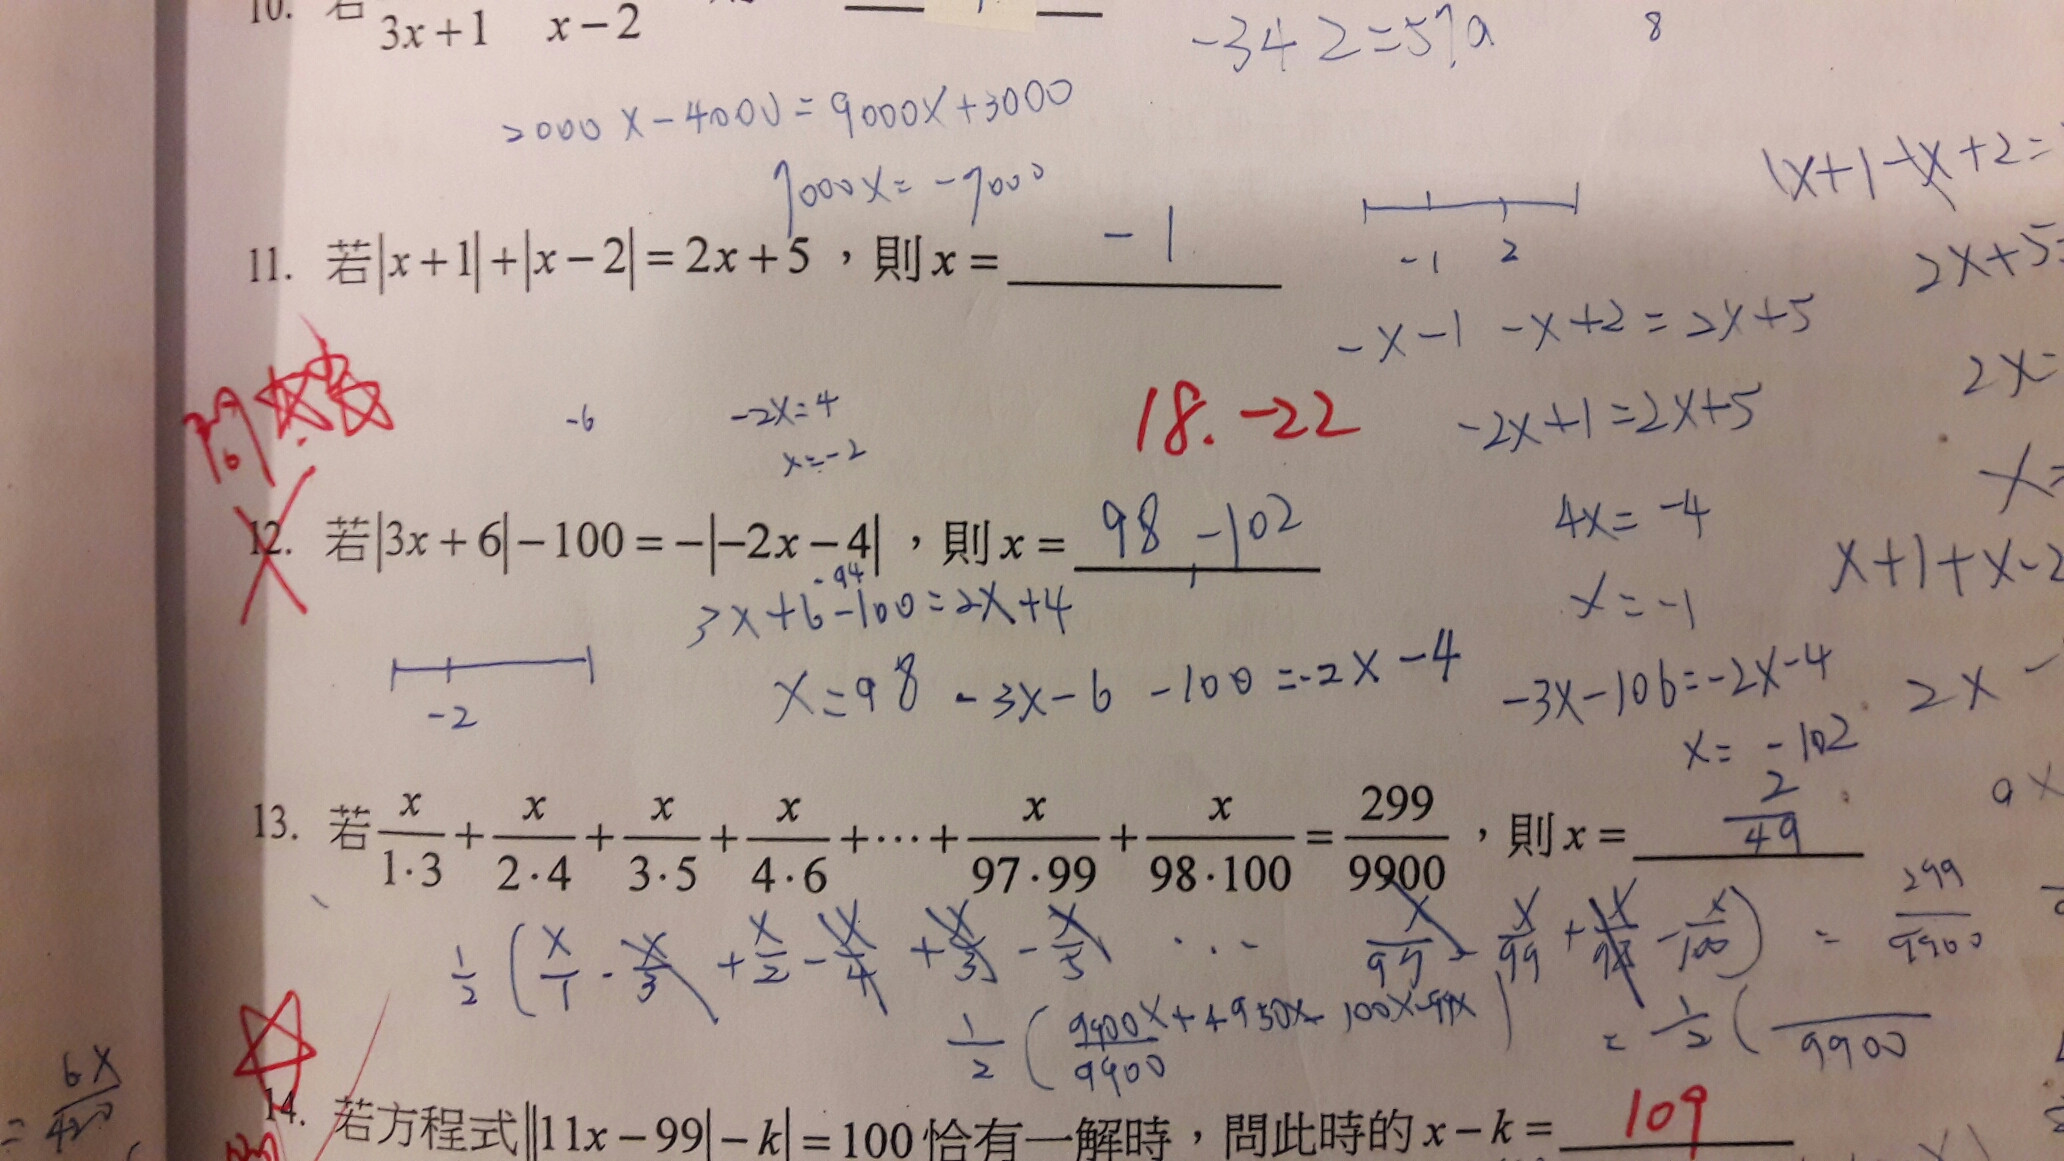 10. 若
3x+1 x-2
-34+2=5?a 8
2000x-4000=9000x+3000
7000x=-7000
1x+1-x+2=
11. 若|x+1|+|x-2|=2x+5，則x= -1
-1 2
2x+5=
-x-1 -x+2=2x+5
2x=
問
-6 -2x=4
x=-2
18. -22
-2x+1=2x+5
x=
12. 若|3x+6|-100=-|-2x-4|，則x= 98, -102
4x=-4
-94
3x+6-100=2x+4
x=-1
x+1+x-2
-2
x=98 -3x-6-100=-2x-4
-3x-106=-2x-4
2x-
x=-102
13. 若x/1·3+x/2·4+x/3·5+x/4·6+···+x/97·99+x/98·100=299/9900，則x= 2/49
ax
1/2(x/1-x/3+x/2-x/4+x/3-x/5 ··- x/97-x/99+x/98-x/100)=299/9900
1/2(9900x+4950x-100x-99x/9900) =1/2( /9900
=6x/4200
14. 若方程式||11x-99|-k|=100恰有一解時，問此時的x-k= 109